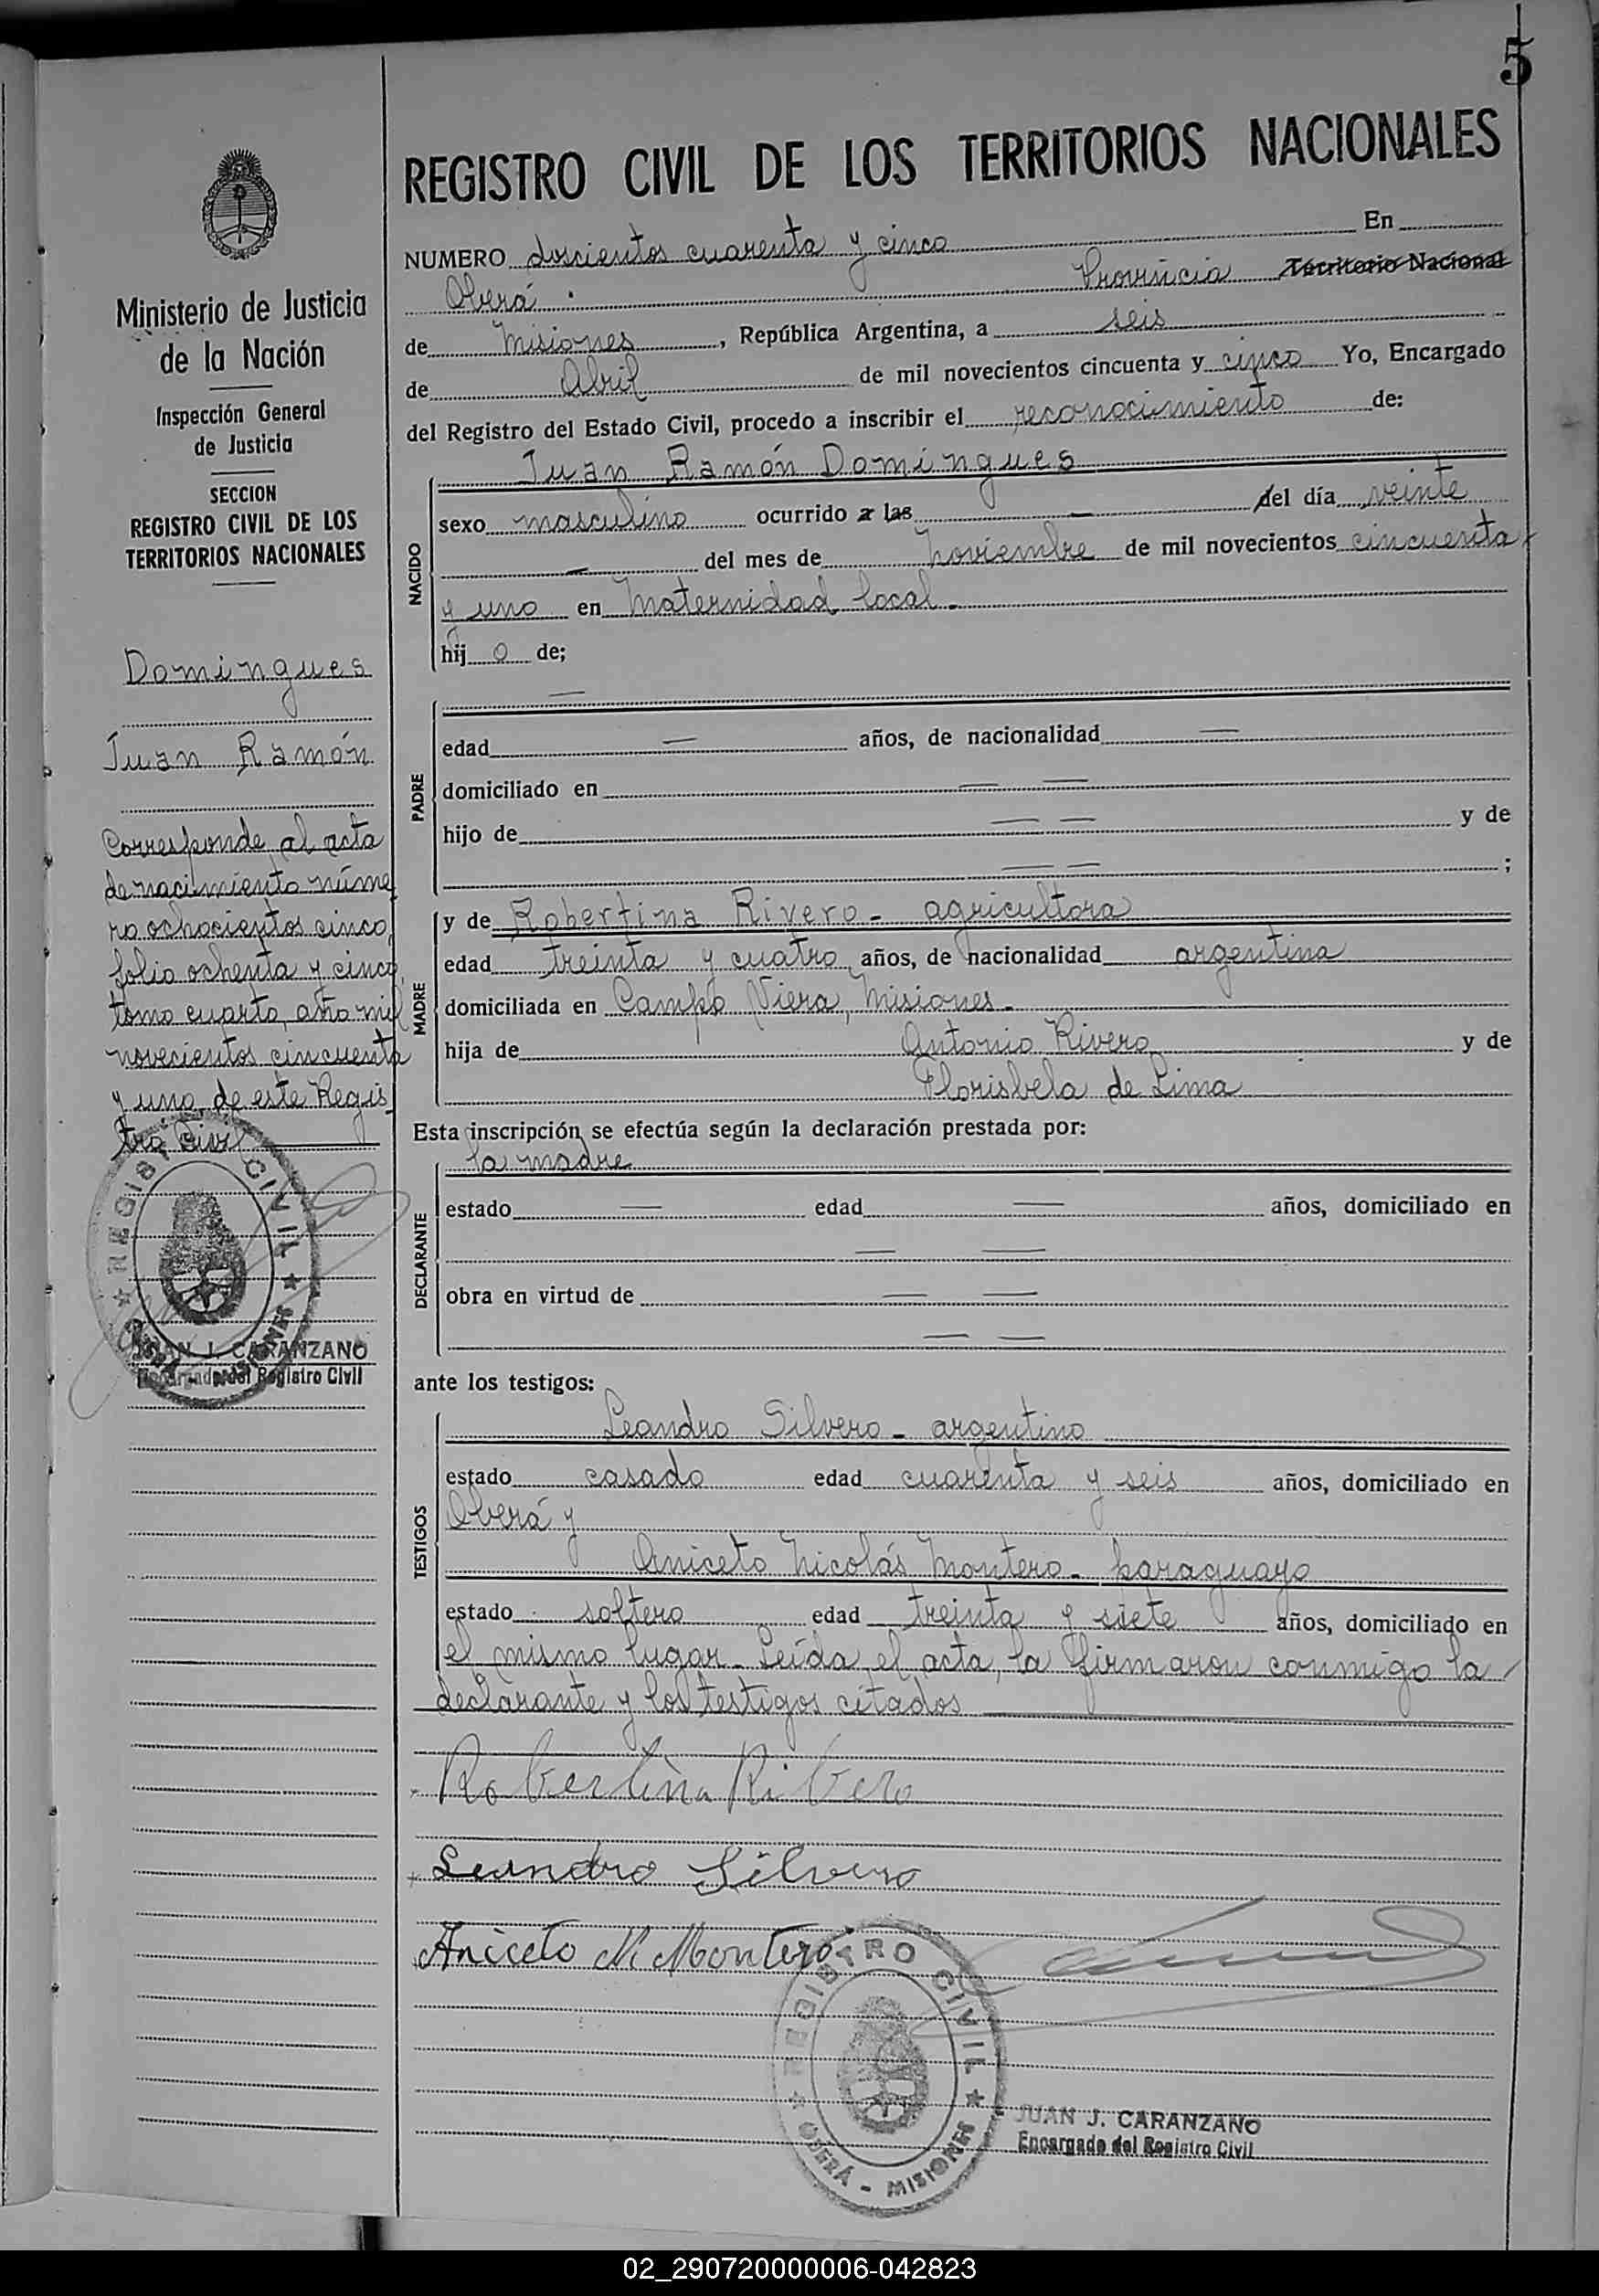 5
REGISTRO CIVIL DE LOS TERRITORIOS NACIONALES
NUMERO doscientos cuarenta y cinco En
Oberá. Provincia Territorio Nacional
de Misiones, República Argentina, a seis
de Abril de mil novecientos cincuenta y cinco Yo, Encargado
del Registro del Estado Civil, procedo a inscribir el reconocimiento de:
NACIDO
Juan Ramón Domingues
sexo masculino ocurrido a las — del día veinte
— del mes de Noviembre de mil novecientos cincuenta
y uno en Maternidad local.
hij o de;
PADRE
—
edad — años, de nacionalidad —
domiciliado en — —
hijo de — — y de
— — ;
MADRE
y de Robertina Rivero - agricultora
edad treinta y cuatro años, de nacionalidad argentina
domiciliada en Campo Viera, Misiones.
hija de Antonio Rivero y de
Florisbela de Lima
Esta inscripción se efectúa según la declaración prestada por:
DECLARANTE
la madre
estado — edad — años, domiciliado en
— —
obra en virtud de — —
— —
ante los testigos:
TESTIGOS
Leandro Silvero - argentino
estado casado edad cuarenta y seis años, domiciliado en
Oberá y
Aniceto Nicolás Montero - paraguayo
estado soltero edad treinta y siete años, domiciliado en
el mismo lugar. Leída el acta, la firmaron conmigo la
declarante y los testigos citados
Robertina Ribero
Leandro Silvero
Aniceto N Montero
REGISTRO CIVIL
OBERÁ - MISIONES
JUAN J. CARANZANO
Encargado del Registro Civil
Ministerio de Justicia
de la Nación
Inspección General
de Justicia
SECCION
REGISTRO CIVIL DE LOS
TERRITORIOS NACIONALES
Domingues
Juan Ramón
Corresponde al acta
de nacimiento núme
ro ochocientos cinco,
folio ochenta y cinco
tomo cuarto, año mil
novecientos cincuenta
y uno de este Regis
tro Civil
REGISTRO CIVIL
OBERÁ - MISIONES
JUAN J. CARANZANO
Encargado del Registro Civil
02_290720000006-042823